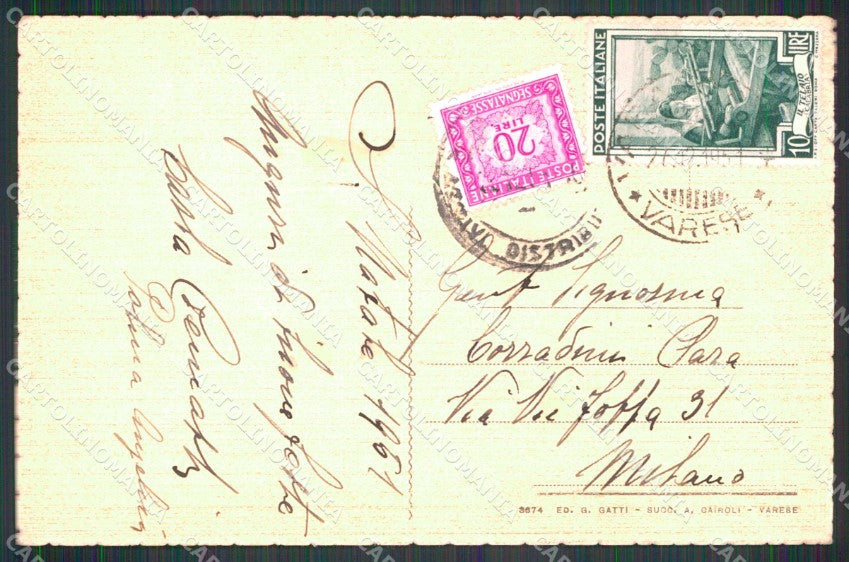 Natale 1951
Auguri di buone feste
POSTE ITALIANE
20
LIRE
SEGNATASSE
POSTE ITALIANE
LIRE
10
IL TELAIO
VARESE
DISTRIBU
Gent Signorina
Corradini Clara
Via
31
Milano
3674 ED. G. GATTI - SUCC. A. CAIROLI - VARESE
CARTOLINOMANIA